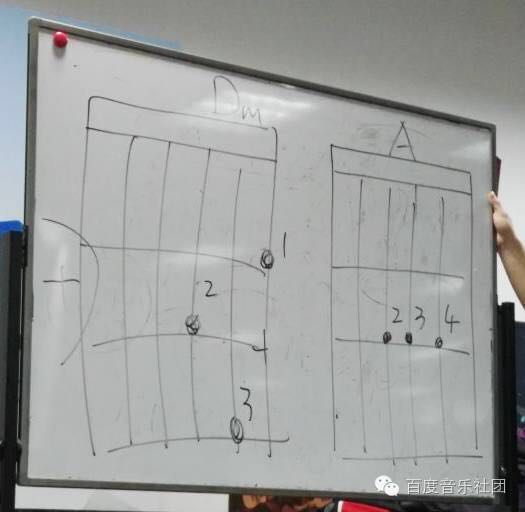 Dm
A
1
2
3
2 3 4
百度音乐社团